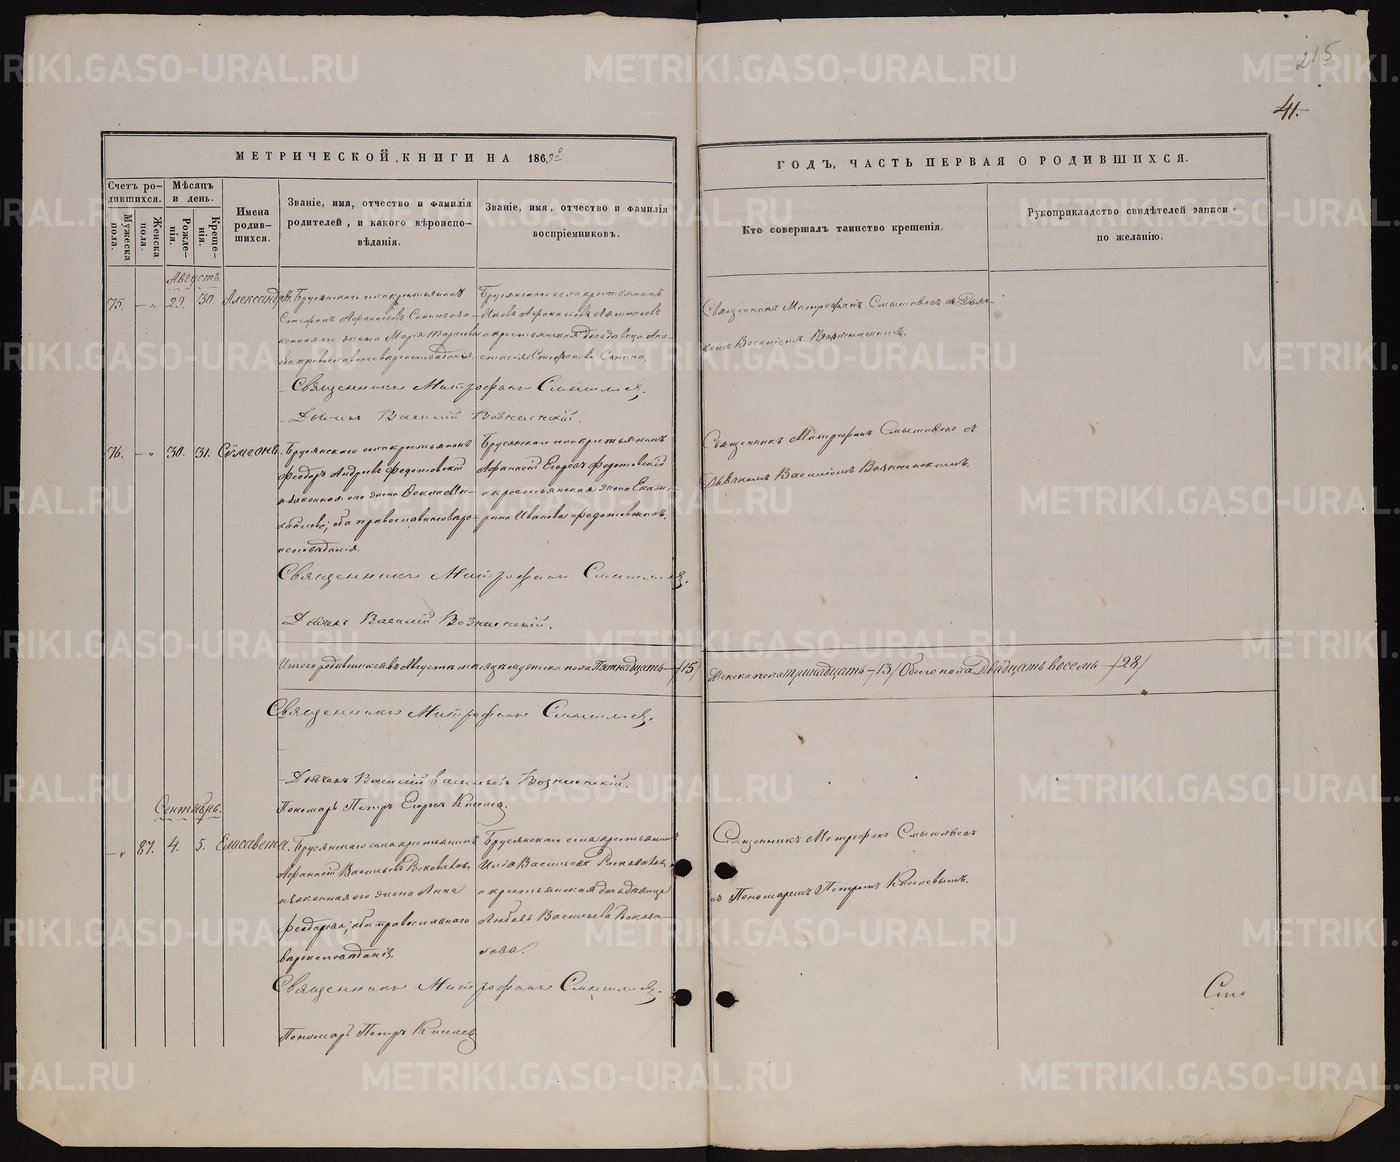 215
41.
МЕТРИЧЕСКОЙ КНИГИ НА 1869й
ГОДЪ, ЧАСТЬ ПЕРВАЯ О РОДИВШИХСЯ.
Счетъ родившихся.
Мужеска пола.
Женска пола.
Мѣсяцъ и день.
Рожденія.
Крещенія.
Имена родившихся.
Званіе, имя, отчество и фамилія родителей, и какого вѣроисповѣданія.
Званіе, имя, отчество и фамилія воспріемниковъ.
Кто совершалъ таинство крещенія.
Рукоприкладство свидѣтелей записи по желанію.
Августъ.
75. — „ 29 30 Александръ.
Брусянскаго села крестьянинъ
Стефанъ Афанасьевъ
законная его жена Марія
оба православнаго вѣроисповѣданія.
Брусянскаго села крестьянинъ
Яковъ
и крестьянская дочь дѣвица Ана-
стасія Стефанова
Священникъ Митрофанъ Смышляевъ съ Дьяч-
комъ Василіемъ Вознесенскимъ.
Священникъ Митрофанъ Смышляевъ.
Дьячекъ Василій Вознесенскій.
76. — „ 30. 31. Сѵмеонъ.
Брусянскаго села крестьянинъ
Феодоръ Андреевъ Федотовскій
и законная его жена Фекла Ми-
хайлова; оба православнаго вѣро-
исповѣданія.
Брусянскаго села крестьянинъ
Афанасій Егоровъ Федотовскій
и крестьянская жена Екате-
рина Иванова Федотовскихъ.
Священникъ Митрофанъ Смышляевъ съ
Дьячкомъ Василіемъ Вознесенскимъ.
Священникъ Митрофанъ Смышляевъ.
Дьячекъ Василій Вознесенскій.
Итого родившихся въ Августѣ мѣсяцѣ мужеска пола Пятнадцать — /15/
Женска пола тринадцать — /13/ Обоего пола Двадцать восемь — /28/
Священникъ Митрофанъ Смышляевъ.
Дьячекъ Василій Васильевъ Вознесенскій.
Пономарь Петръ Егоровъ Киселевъ.
Сентябрь.
— „ 87. 4. 5. Елисавета.
Брусянскаго села крестьянинъ
Афанасій Васильевъ Росковаловъ
и законная его жена Анна
Феодорова; оба православнаго
вѣроисповѣданія.
Брусянскаго села крестьянинъ
Илія Васильевъ
и крестьянская дочь дѣвица
Любовь Васильева
Священникъ Митрофанъ Смышляевъ
съ Пономаремъ Петромъ Киселевымъ.
Священникъ Митрофанъ Смышляевъ.
Пономарь Петръ Киселевъ
METRIKI.GASO-URAL.RU